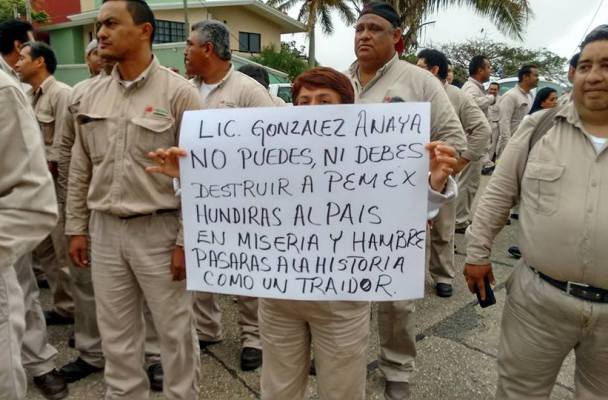 LIC. GONZALEZ ANAYA
NO PUEDES, NI DEBES
DESTRUIR A PEMEX
HUNDIRAS AL PAIS
EN MISERIA Y HAMBRE
PASARAS A LA HISTORIA
COMO UN TRAIDOR.